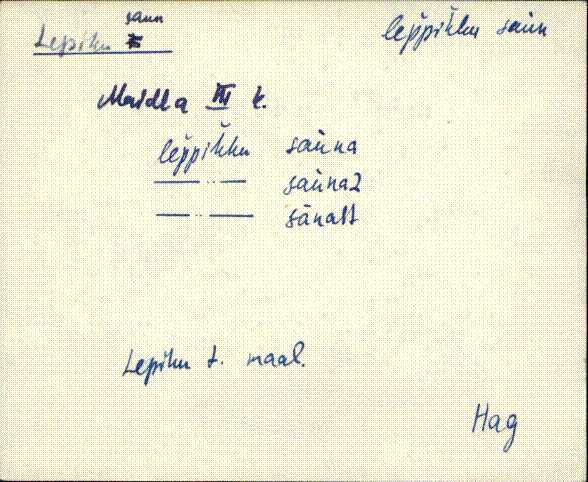 Lepiku saun
lep̆pĭkku saùn
Maidla III k.
lep̆pĭkku saùna
—— „ —— saùna2
—— „ —— sānalt
Lepiku t. maal.
Hag